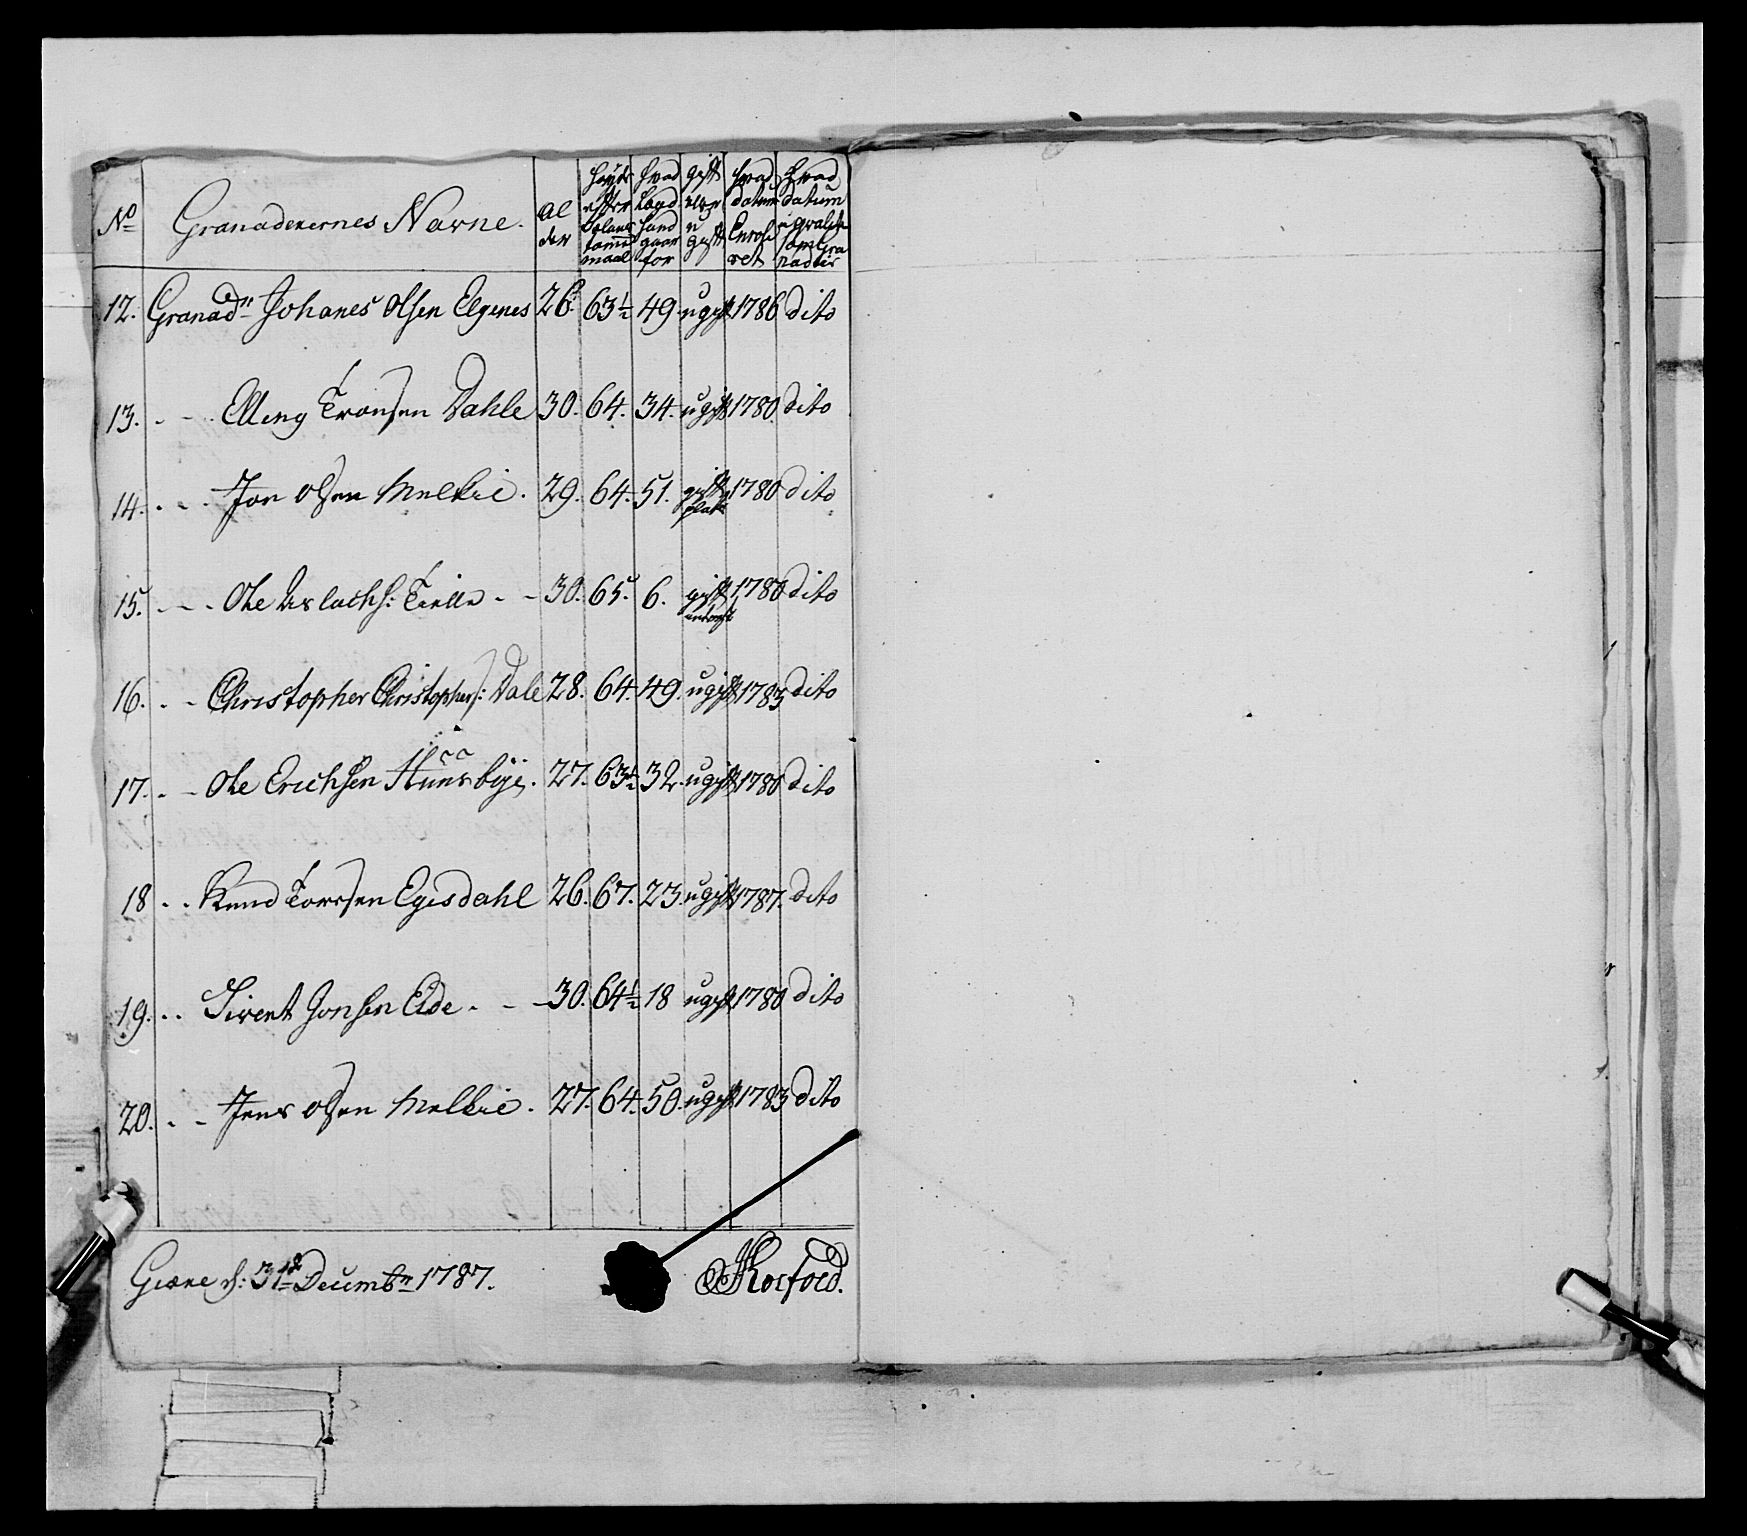 No Granaderernes Navne. Al der Høyde efter Solane tomme maal hvad Lægd hand gaar for gift eller u gift hvad datum Enrole ret hvad datum som Gra nadeir
12. Granadr Johanes Olsen Elgenes 26. 63½ 49. ugift 1786 dito
13. - - Elleng Tronsen Dahle 30. 64. 34. ugift 1780. dito
14. - - Jon Olsen Melbie. 29. 64. 51. gift 1780 dito
15. - - Ole Aslachs: - - 30. 65. 6. gift 1780 dito
16. - - Christopher Christophers: Dale 28. 64. 49. ugift 1783 dito
17. - - Ole Erichsen Hunsbye. 27. 63½ 32. ugift 1780 dito
18 - - Knud Torrsen Egisdahl 26. 67. 23. ugift 1787. dito
19. - - Sivert Jonsen Eide - - 30. 64½ 18 ugift 1780 dito
20. - - Jens Olsen Melbie. 27. 64. 50. ugift 1783 dito
Giærne d: 31te Decembr 1787. Korfoed.